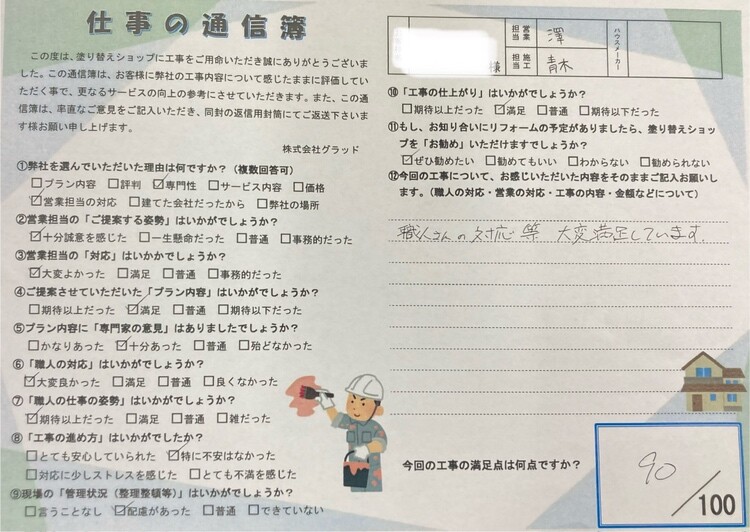 仕事の通信簿
この度は、塗り替えショップに工事をご用命いただき誠にありがとうございました。この通信簿は、お客様に弊社の工事内容について感じたままに評価していただく事で、更なるサービスの向上の参考にさせていただきます。また、この通信簿は、率直なご意見をご記入いただき、同封の返信用封筒にてご返送下さいます様お願い申し上げます。
株式会社グラッド
①弊社を選んでいただいた理由は何ですか？（複数回答可）
□プラン内容 □評判 ☑専門性 □サービス内容 □価格
☑営業担当の対応 □建てた会社だったから □弊社の場所
②営業担当の「ご提案する姿勢」はいかがでしょうか？
☑十分誠意を感じた □一生懸命だった □普通 □事務的だった
③営業担当の「対応」はいかかでしょうか？
☑大変よかった □満足 □普通 □事務的だった
④ご提案させていただいた「プラン内容」はいかがでしょうか？
□期待以上だった ☑満足 □普通 □期待以下だった
⑤プラン内容に「専門家の意見」はありましたでしょうか？
□かなりあった ☑十分あった □普通 □殆どなかった
⑥「職人の対応」はいかがでしょうか？
☑大変良かった □満足 □普通 □良くなかった
⑦「職人の仕事の姿勢」はいかがでしょうか？
☑期待以上だった □満足 □普通 □雑だった
⑧「工事の進め方」はいかがでしたか？
□とても安心していられた ☑特に不安はなかった
□対応に少しストレスを感じた □とても不満を感じた
⑨現場の「管理状況（整理整頓等）」はいかがでしょうか？
□言うことなし ☑配慮があった □普通 □できていない
様
営業担当 澤
施工担当 青木
ハウスメーカー
⑩「工事の仕上がり」はいかがでしょうか？
□期待以上だった ☑満足 □普通 □期待以下だった
⑪もし、お知り合いにリフォームの予定がありましたら、塗り替えショップを「お勧め」いただけますでしょうか？
☑ぜひ勧めたい □勧めてもいい □わからない □勧められない
⑫今回の工事について、お感じいただいた内容をそのままご記入お願いします。（職人の対応・営業の対応・工事の内容・金額などについて）
職人さんの対応等 大変満足しています。
今回の工事の満足点は何点ですか？
90/100